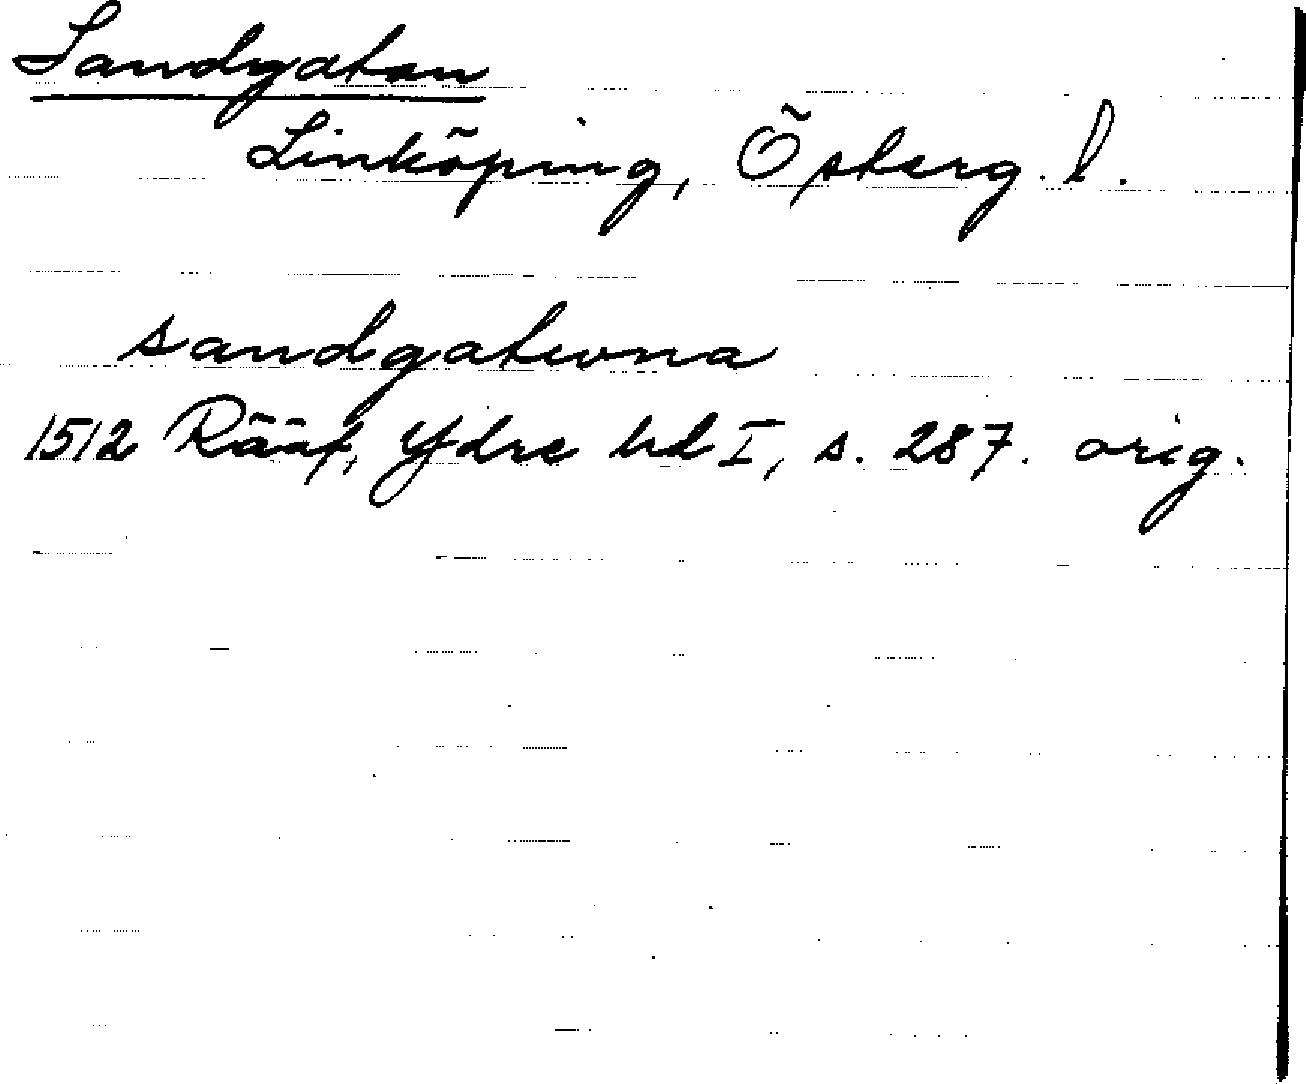 Sandgatan
Linköping, Österg. l.
sandgatwna
1512 Rääf, Ydre hd I, s. 287. orig.